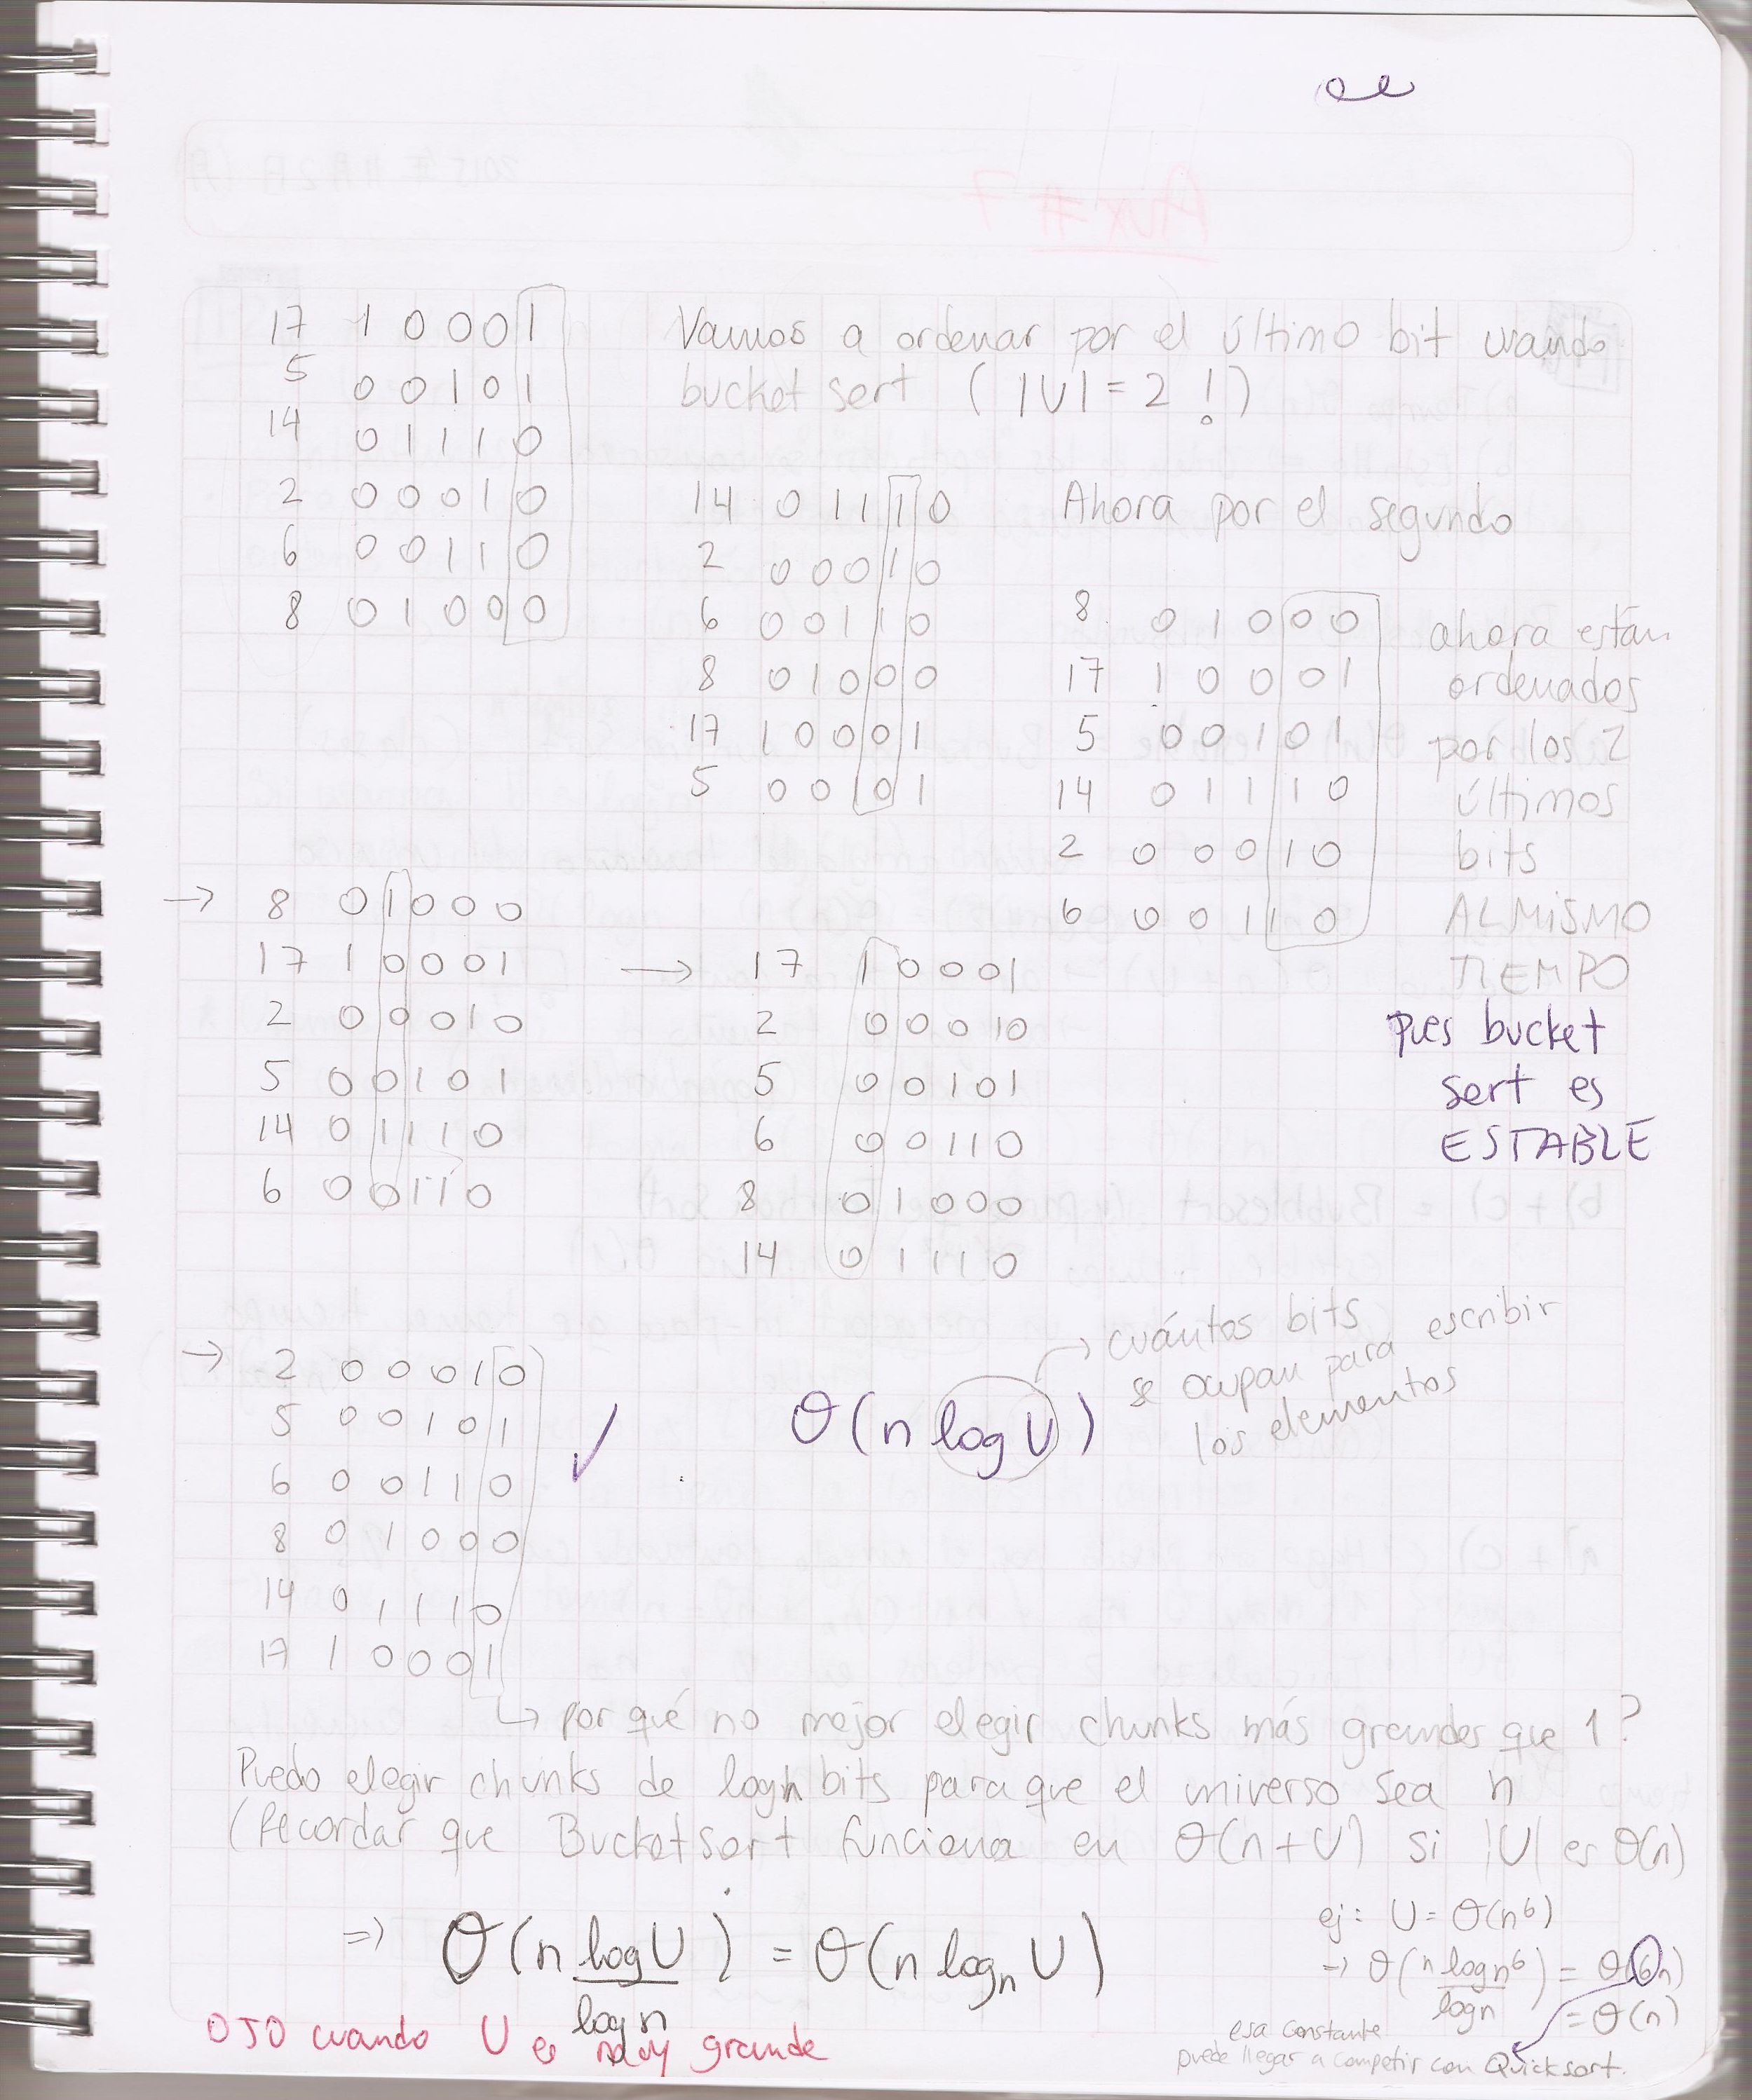 17 1 0 0 0 1
5 0 0 1 0 1
14 0 1 1 1 0
2 0 0 0 1 0
6 0 0 1 1 0
8 0 1 0 0 0
Vamos a ordenar por el último bit usando
bucket sort ( |U| = 2 ! )
14 0 1 1 1 0
2 0 0 0 1 0
6 0 0 1 1 0
8 0 1 0 0 0
17 1 0 0 0 1
5 0 0 1 0 1
Ahora por el segundo
8 0 1 0 0 0
17 1 0 0 0 1
5 0 0 1 0 1
14 0 1 1 1 0
2 0 0 0 1 0
6 0 0 1 1 0
ahora están
ordenados
por los 2
últimos
bits
AL MISMO
TIEMPO
pues bucket
sort es
ESTABLE
→ 8 0 1 0 0 0
17 1 0 0 0 1
2 0 0 0 1 0
5 0 0 1 0 1
14 0 1 1 1 0
6 0 0 1 1 0
→ 17 1 0 0 0 1
2 0 0 0 1 0
5 0 0 1 0 1
6 0 0 1 1 0
8 0 1 0 0 0
14 0 1 1 1 0
→ 2 0 0 0 1 0
5 0 0 1 0 1
6 0 0 1 1 0
8 0 1 0 0 0
14 0 1 1 1 0
17 1 0 0 0 1
✓
Θ(n log U)
→ cuántos bits
se ocupan para escribir
los elementos
↳ por qué no mejor elegir chunks más grandes que 1?
Puedo elegir chunks de log n bits para que el universo sea n
(Recordar que Bucketsort funciona en Θ(n+U) si |U| es Θ(n)
⇒ Θ(n log U / log n) = Θ(n logₙ U)
ej: U = Θ(n⁶)
→ Θ(n log n⁶ / log n) = Θ(6n)
= Θ(n)
esa constante
puede llegar a competir con Quicksort.
OJO cuando U es muy grande